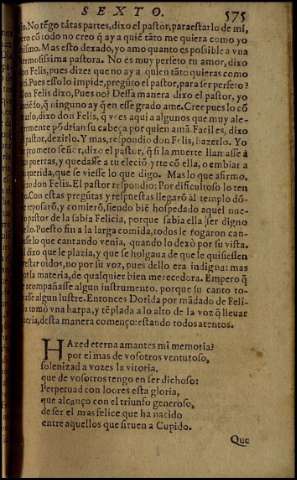 SEXTO. 575
No tẽgo tãtas partes, dixo el pastor, para estarlo de mi,
cõ todo no creo q̃ ay a quiẽ tãto me quiera como yo
Mas esto dexado, yo amo quanto es possible a vna
pastora. No es muy perfeto tu amor, dixo
don Felis, pues dizes que no ay a quien tãto quieras como
Pues esso lo impide, pregũto el pastor, para ser perfeto?
Felis dixo, Pues no? Dessa manera dixo el pastor, yo
q̃ ninguno ay q̃ en esse grado ame. Cree pues lo cõ
dixo don Felis, q̃ ves aqui a algunos que muy ale-
põdrian su cabeça por quien amã. Facil es, dixo
dezirlo. Y mas, respondo don Felis, hazerlo. Yo
prometo señor, dixo el pastor, q̃ si la muerte llamasse à
puertas, y quedasse a tu eleciõ yrte cõ ella, o embiar a
querida, que se viesse lo que digo. Mas lo que afirmo,
don Felis. El pastor respondio: Por dificultoso lo ten
Con estas pregũtas y respuestas llegarõ al templo dõ-
reposarõ, y comierõ, siendo biẽ hospedado aquel nue-
pastor de la sabia Felicia, porque sabia ella ser digno
Puesto fin a la larga comida, todos le rogaron can-
lo que cantando venia, quando lo dexò por su vista.
dixo que le plazia, y que se holgaua de que le quisiessen
oidos, no por su voz, pues dello era indigna: mas
la materia, de qualquier bien merecedora. Empero q̃
acompañasse algun instrumento, porque su canto to-
algun lustre. Entonces Dorida por mãdado de Feli-
tomò vna harpa, y tẽplada a lo alto de la voz q̃ lleuar
desta manera començo: estando todos atentos.
HAzed eterna amantes mi memoria?
por el mas de vosotros venturoso,
solenizad a vozes la vitoria,
que de vosotros tengo en ser dichoso:
Perpetuad con loores esta gloria,
que alcanço con el triunfo generoso,
de ser el mas felice que ha nacido
entre aquellos que siruen a Cupido.
Que